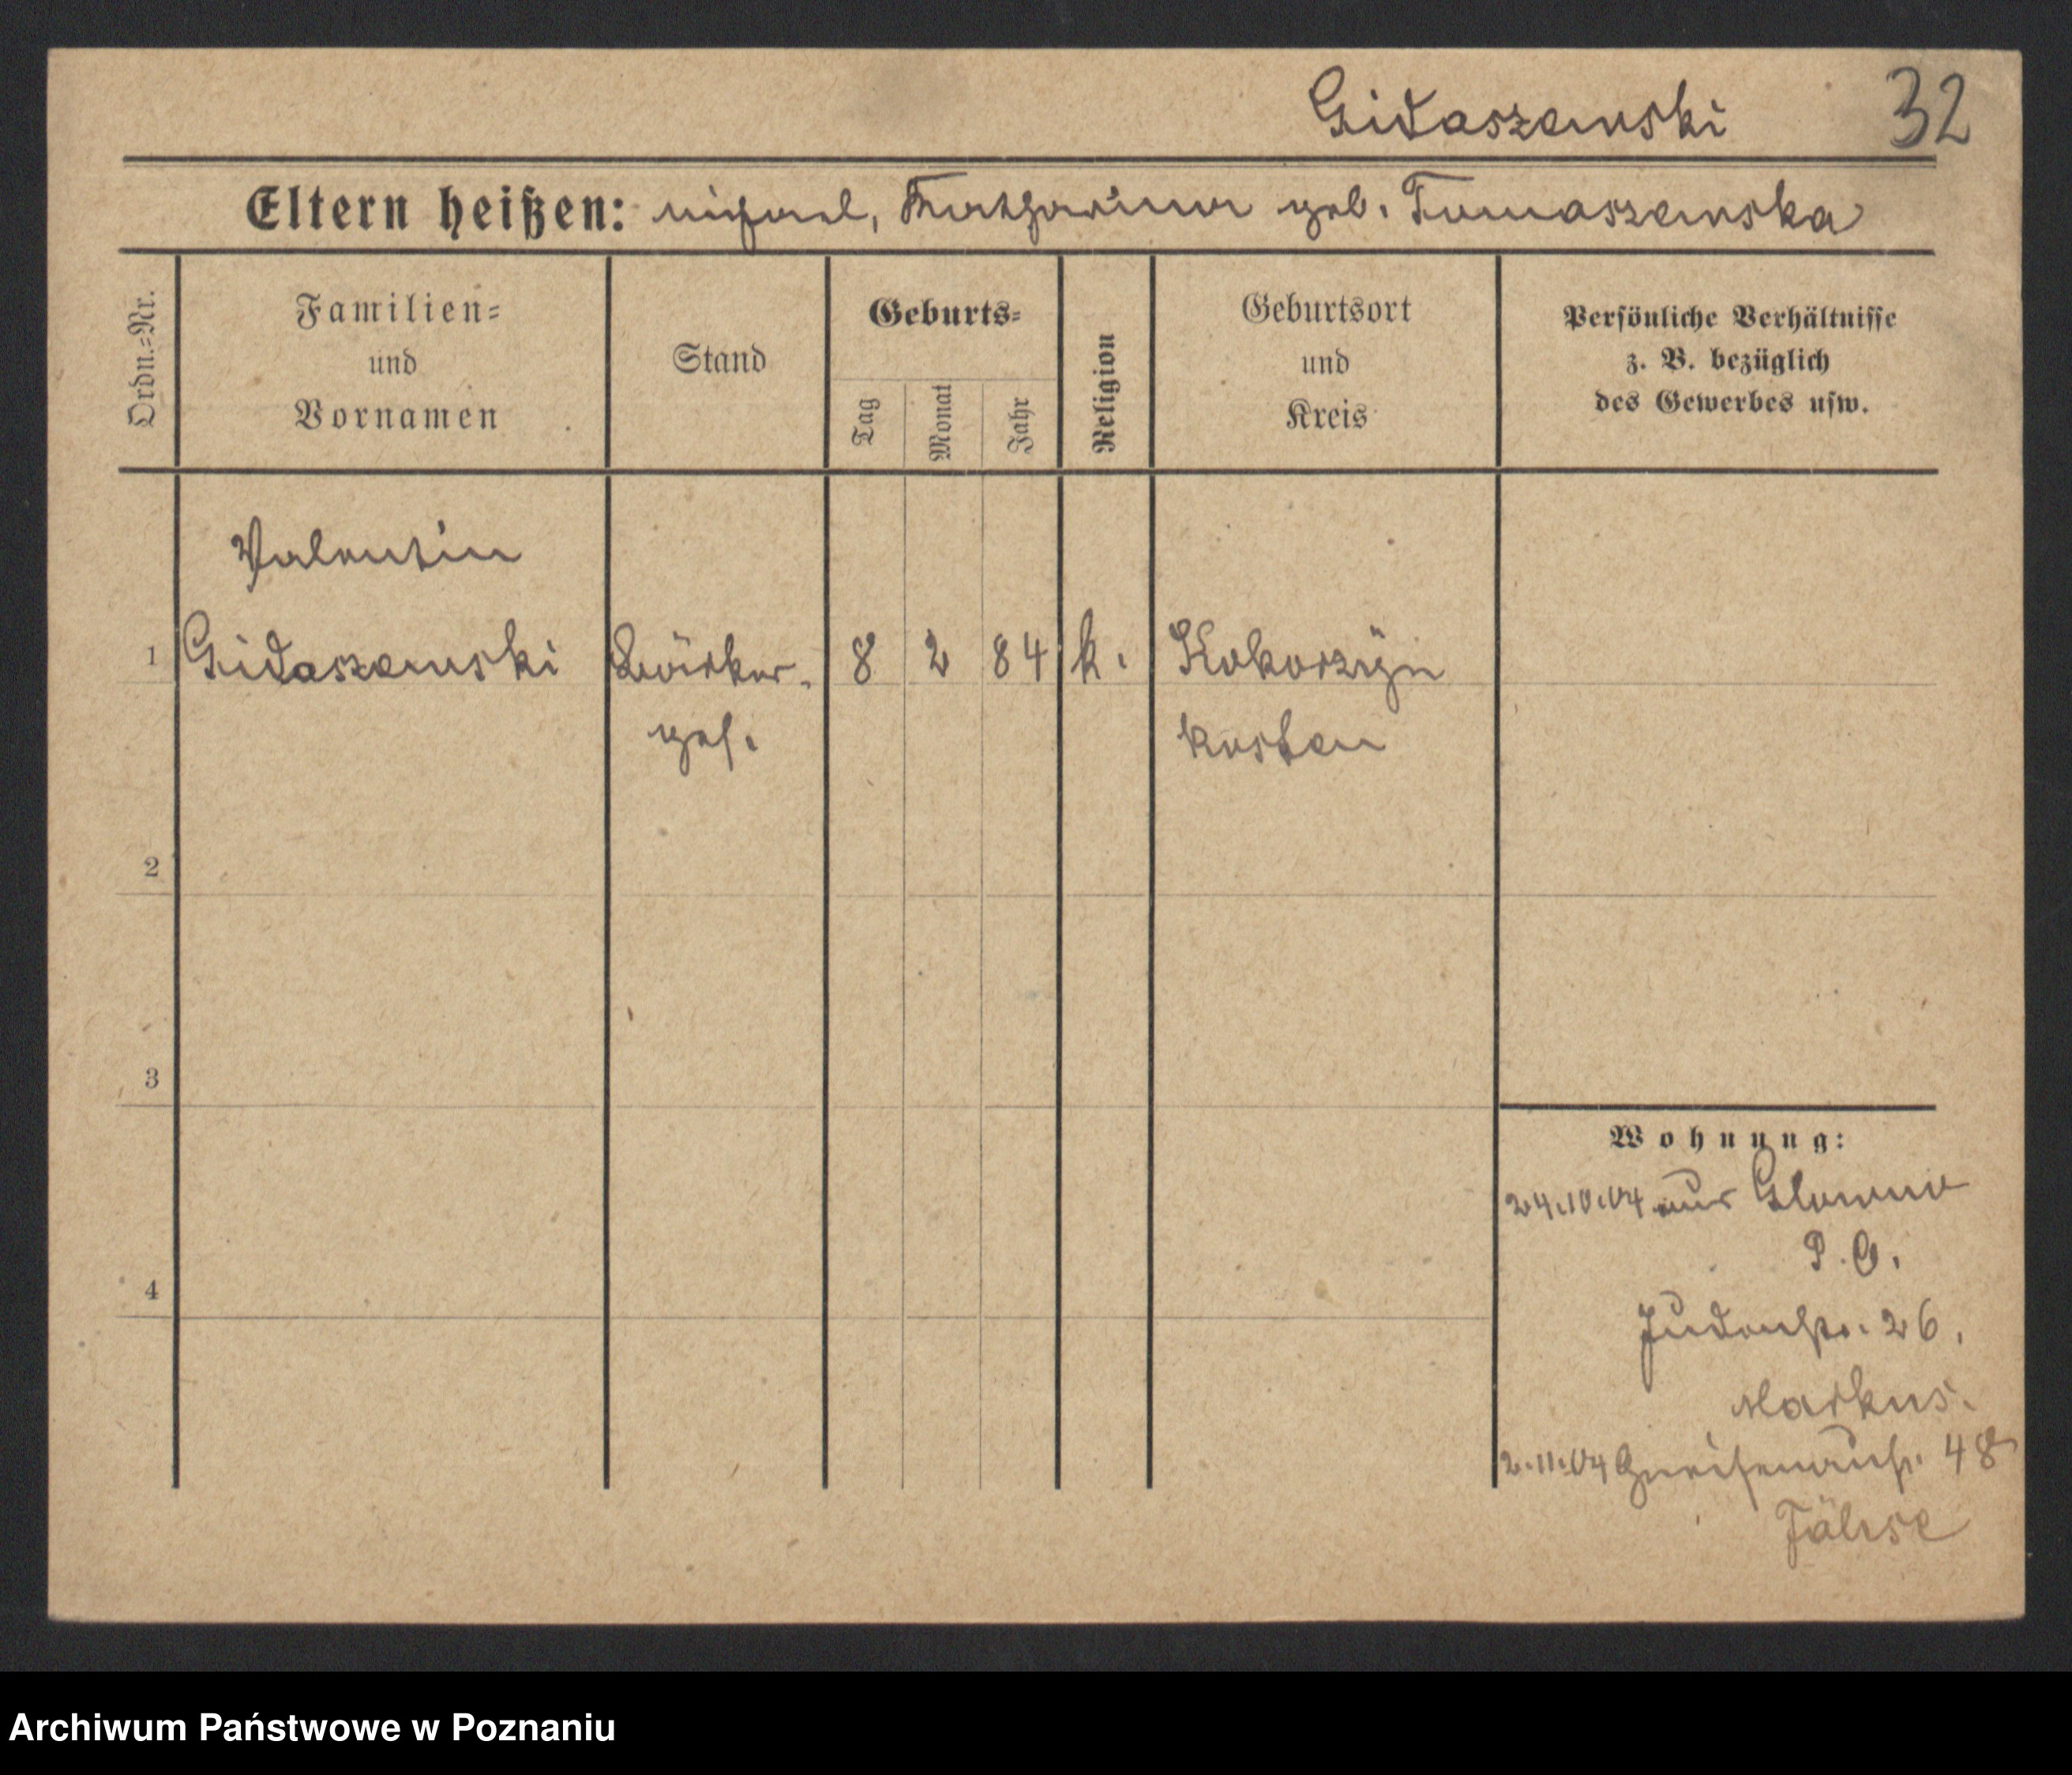 Gidaszewski 32
Eltern heißen: Michael, Katharina geb. Tomaszewska
Ordn.=Nr.
Familien=
und
Vornamen
Stand
Geburts=
Tag
Monat
Jahr
Religion
Geburtsort
und
Kreis
Persönliche Verhältnisse
z. B. bezüglich
des Gewerbes usw.
Valentin
1 Gidaszewski Bäcker- 8 2 84 k. Kokorzyn
ges. Kosten
2
3
4
Wohnung:
24.10.04 aus Glowno
P. O.
Judenstr. 26.
Markus.
2.11.04 Gneisenaustr. 48
Archiwum Państwowe w Poznaniu